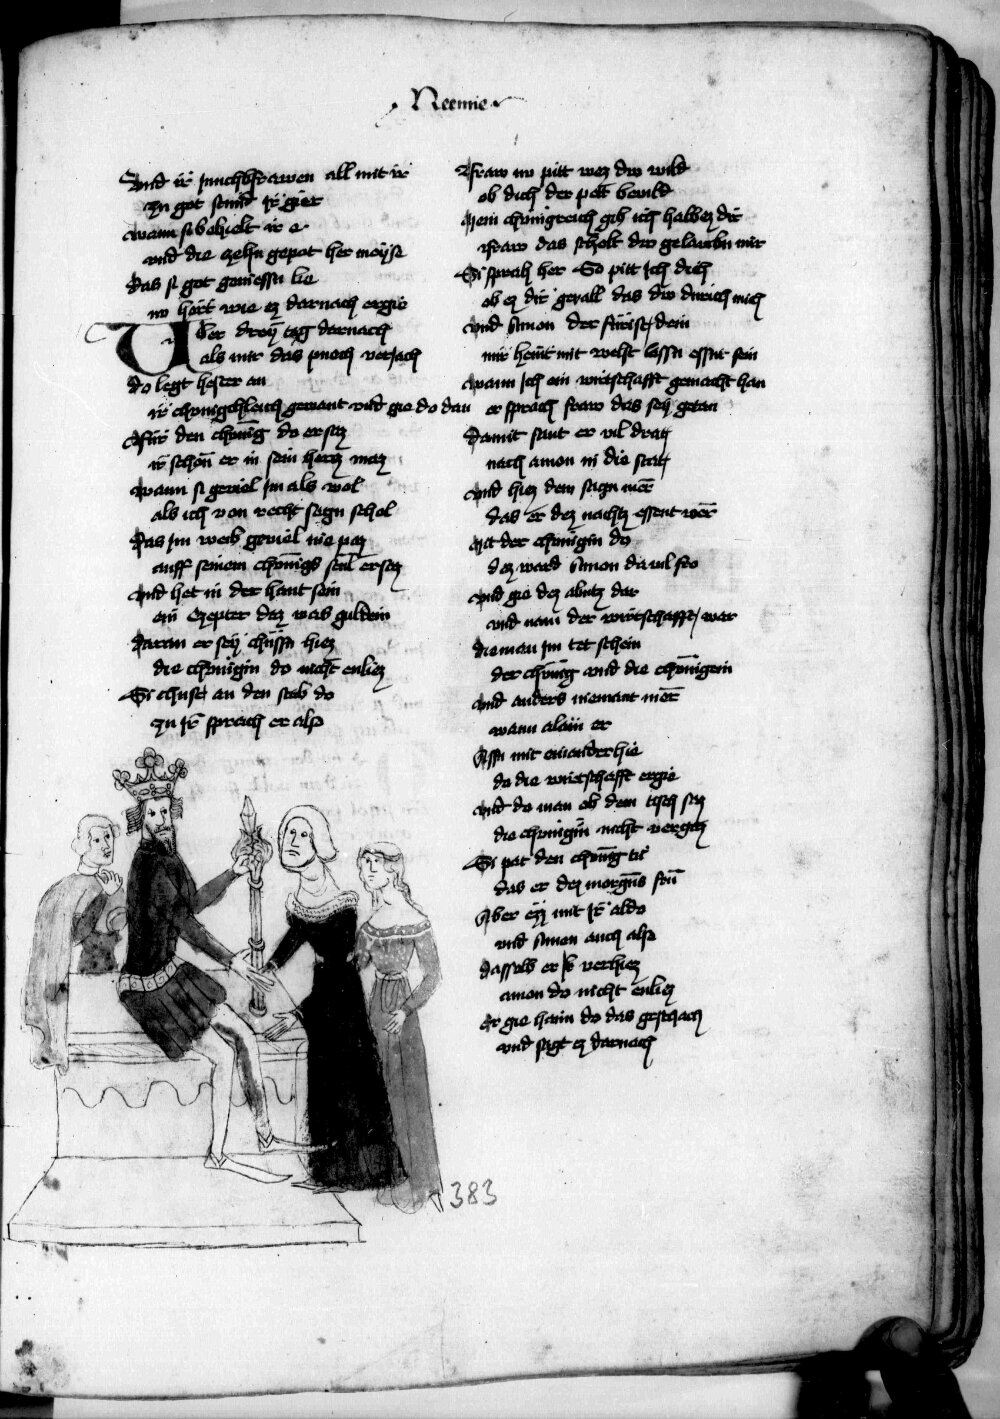 Neemie
Und ir junchfrawen all mit ir
zu got stund ir gier
wann si behielt ir e
und die zehn gepot her moyse
das si got geniessn lie
nu hört wie ez darnach ergie
Uber dreÿ tag darnach
als mir das puoch verjach
do legt hester an
ir chönigchleich gewant und gie do dan
für den chönig do er saz
ir schön er in sein hertz maz
wann si geviel im als wol
als ich von recht sagn schol
das im weib geviel nie paz
auff seinem chönigs stul er saz
und het in der hant sein
ein zepter daz was guldein
daran er seÿ chüssn hiez
die chönigin do nicht enliez
Si chust an den stab do
zu ir sprach er also
Fraw nu pitt wez dw wild
ob dich der pett bevild
Mein chönigreich gib ich halbez dir
fraw das scholt dw gelaubn mir
Si sprach her So pitt ich dich
ob ez dir gevall das dw durich mich
und amon der fürist dein
mir heint mit welst lassn essnt sein
wann ich ein wirtschafft gemacht han
er sprach fraw das seÿ getan
damit sant er vil drat
nach amon in die stat
und hiez dem sagn mer
das er dez nachtz essent wer
Mit der chönigin do
dez ward amon da vil fro
und gie dez abntz dar
und nam der wirtschafft war
die man im tet schein
der chönig und die chönigein
und anders niemant mer
wann alain er
Assn mit einander hie
do die wirtschafft ergie
und do man ob dem tisch saz
die chönigin nicht vergaz
Si pat den chönig
das er dez morgens
Aber ezz mit ir aldo
und amon auch also
dasselb er ir verhiez
amon do nicht enliez
Er gie haim do das geschach
und sagt ez darnach
383